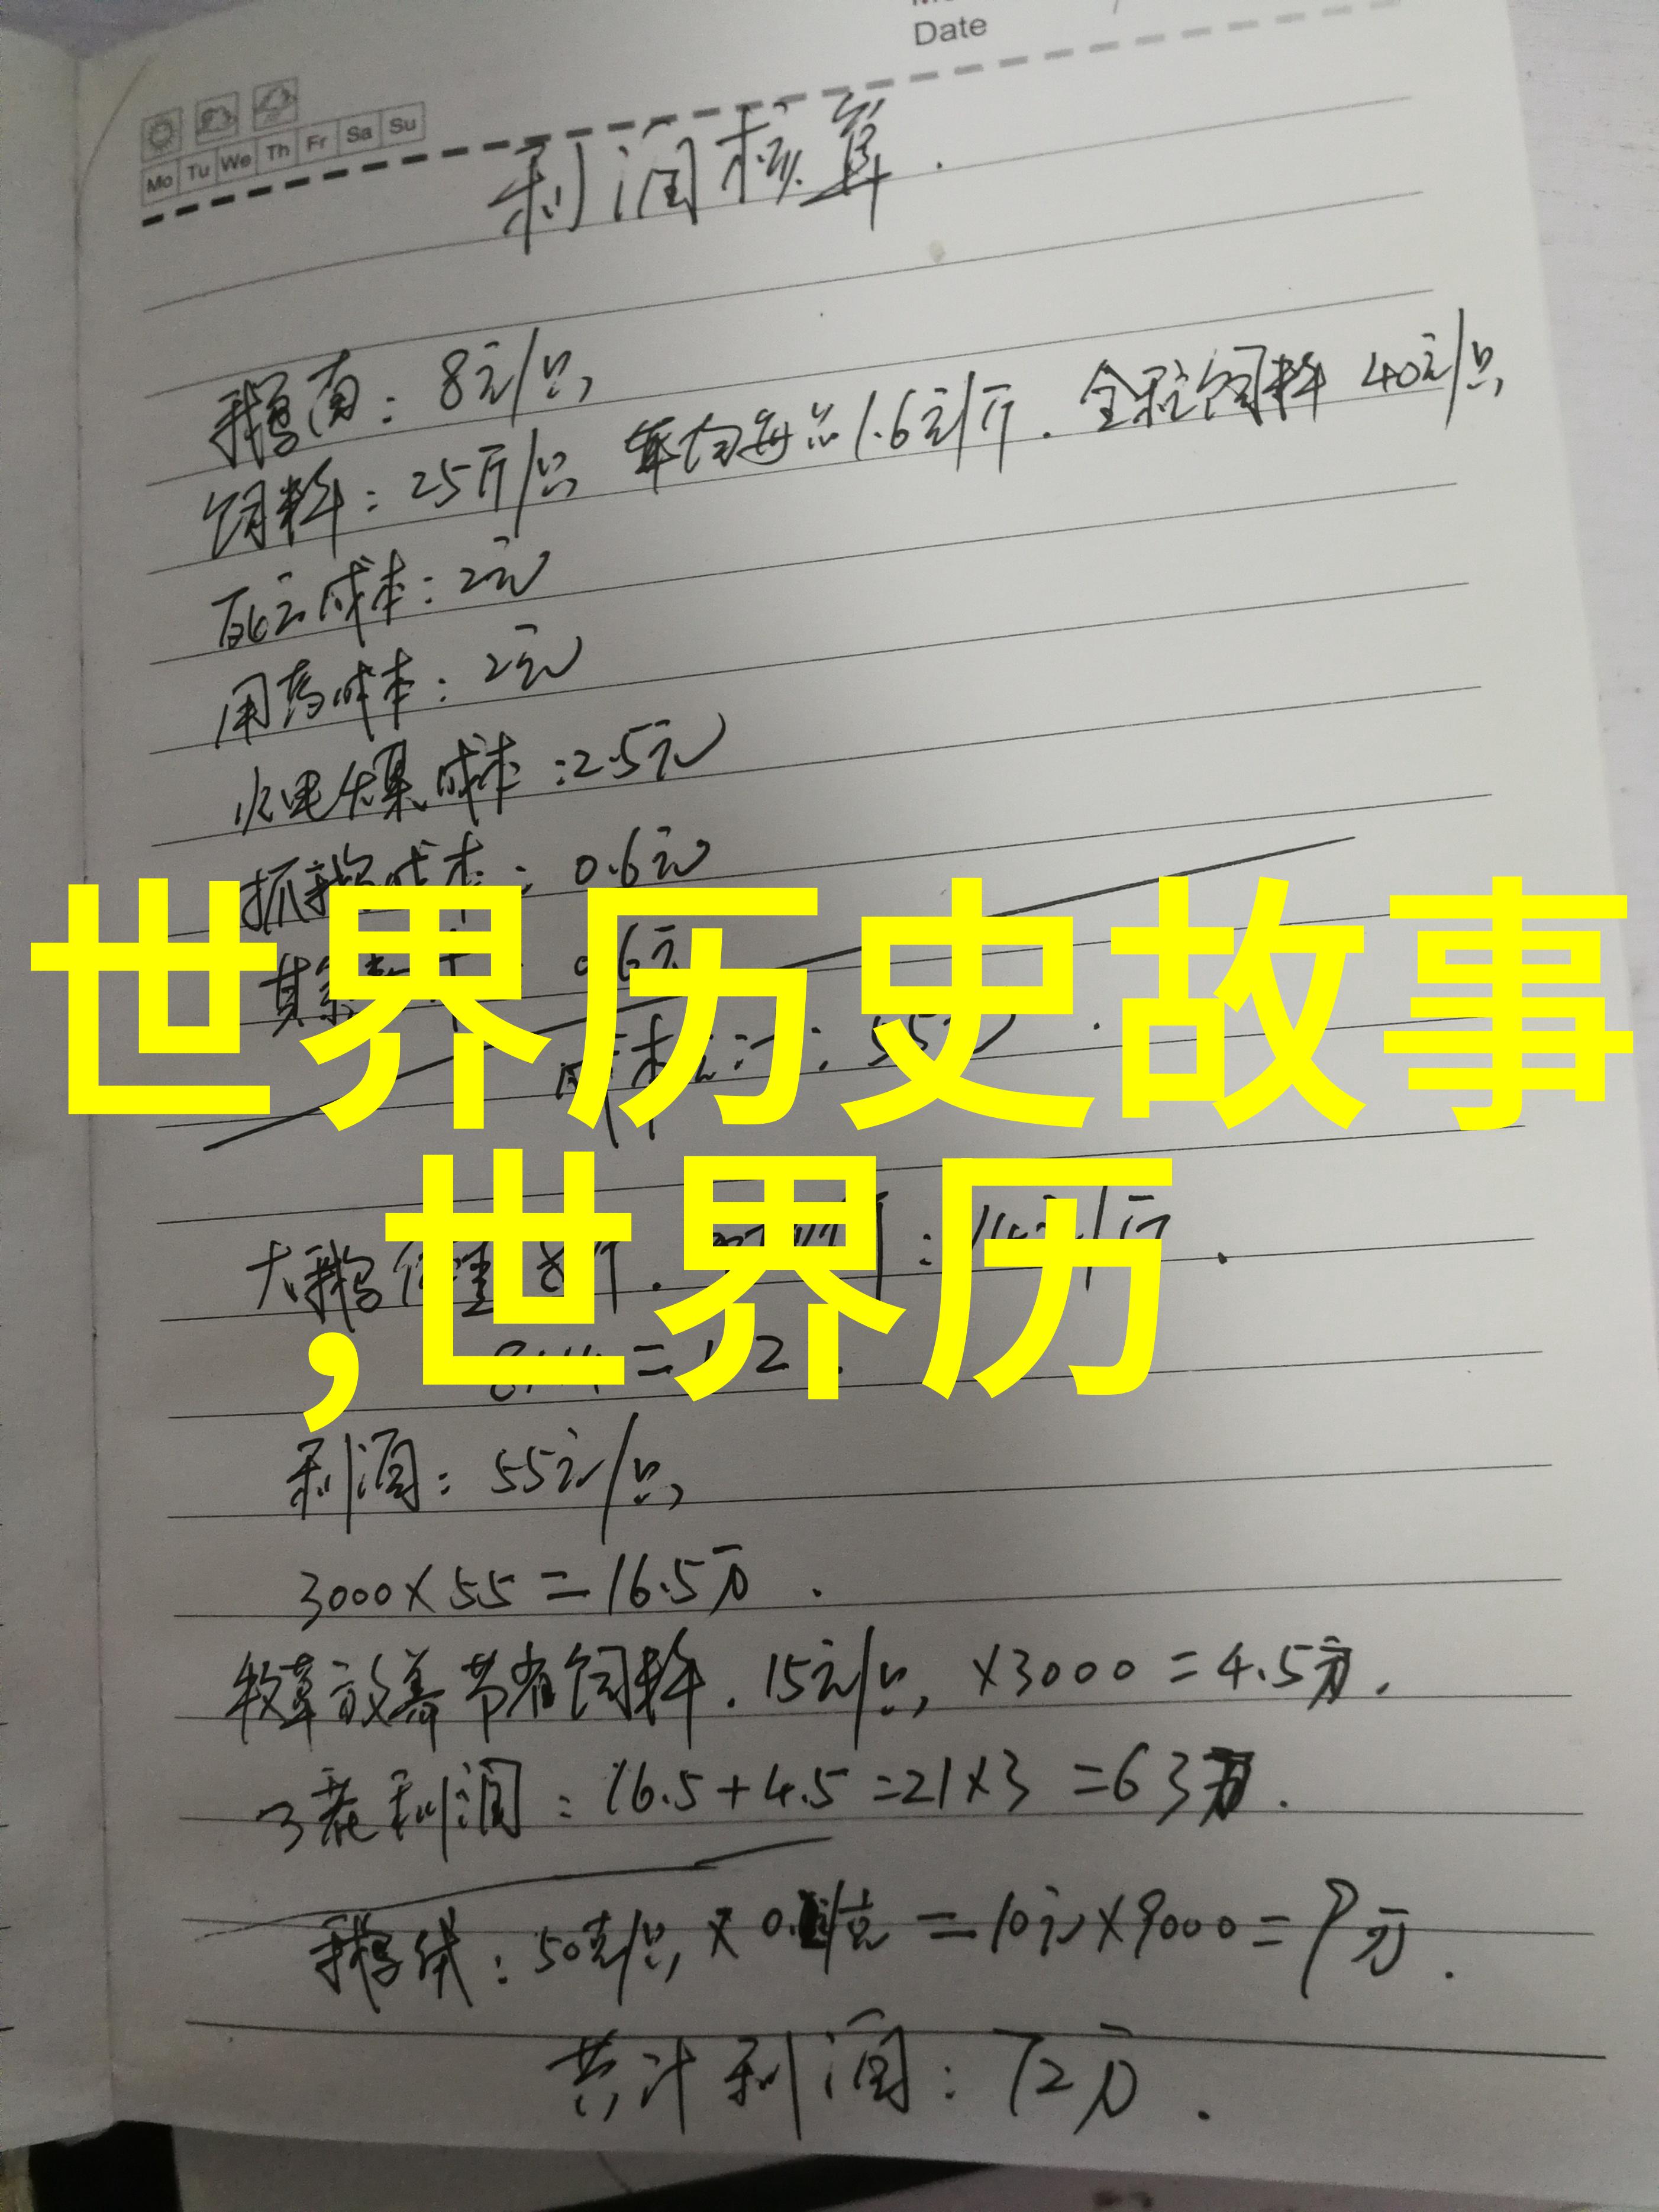 Date
Mo Tu We Th Fr Sa Su
利润核算.
鹅苗: 8元/只,
饲料: 25斤/只, 平均每只1.6元/斤. 全程饲料 40元/只,
死亡成本: 2元
用药成本: 2元
水电煤成本: 2.5元
抓鹅成本: 0.6元
世界历史故事
,世界历
利润: 55元/只,
3000×55=16.5万.
牧草放养节省饲料. 15元/只, ×3000=4.5万.
3茬利润: 16.5+4.5=21×3=63万.
鹅绒: 50克/只, =10元×9000=9万.
共计利润: 72万.